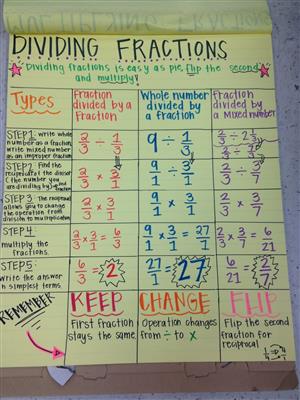 DIVIDING FRACTIONS
Dividing fractions is easy as pie, flip the second
and multiply!
Types
Fraction divided by a Fraction
Whole number divided by a fraction
Fraction divided by a Mixed number
STEP 1: Write whole
number as a fraction,
write mixed number
as an improper fraction
2/3 ÷ 1/3
9 ÷ 1/3
2/3 ÷ 2 1/3
2/3 ÷ 7/3
STEP 2: Find the
reciprocal of the divisor
(the number you
are dividing by)
2/3 × 3/1
9/1 ÷ 3/1
2/3 ÷ 3/7
STEP 3: The reciprocal
allows you to change
the operation from
division to multiplication
2/3 × 3/1
9/1 × 3/1
2/3 × 3/7
STEP 4:
multiply the
fractions.
2/3 × 3/1 = 6/3
9/1 × 3/1 = 27/1
2/3 × 3/7 = 6/21
STEP 5:
Write the answer
in simplest terms.
6/3 = 2
27/1 = 27
6/21 = 2/7
REMEMBER
KEEP
First fraction
stays the same.
CHANGE
Operation changes
from ÷ to ×
FLIP
Flip the second
fraction for
reciprocal